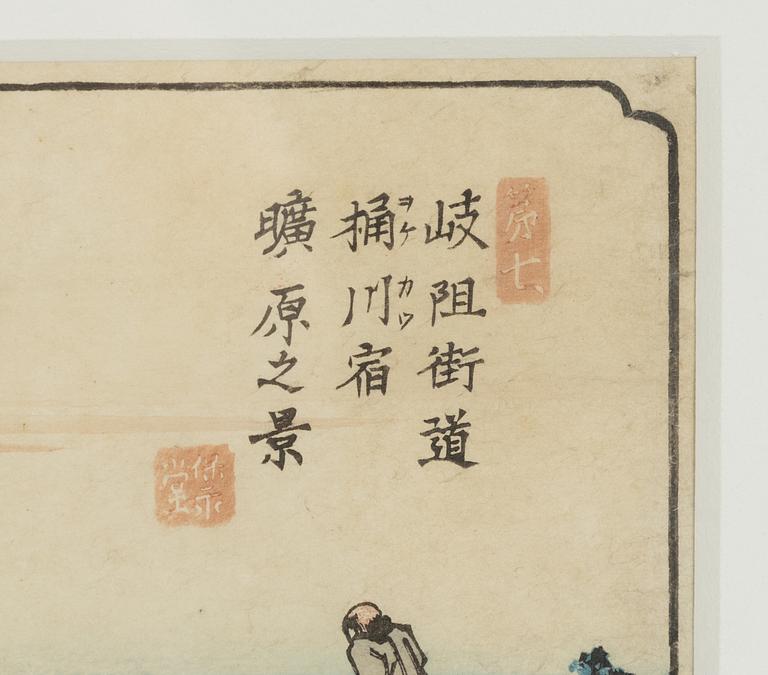 第七
岐阻街道
桶川宿
ヲケカワ
曠原之景
保永堂